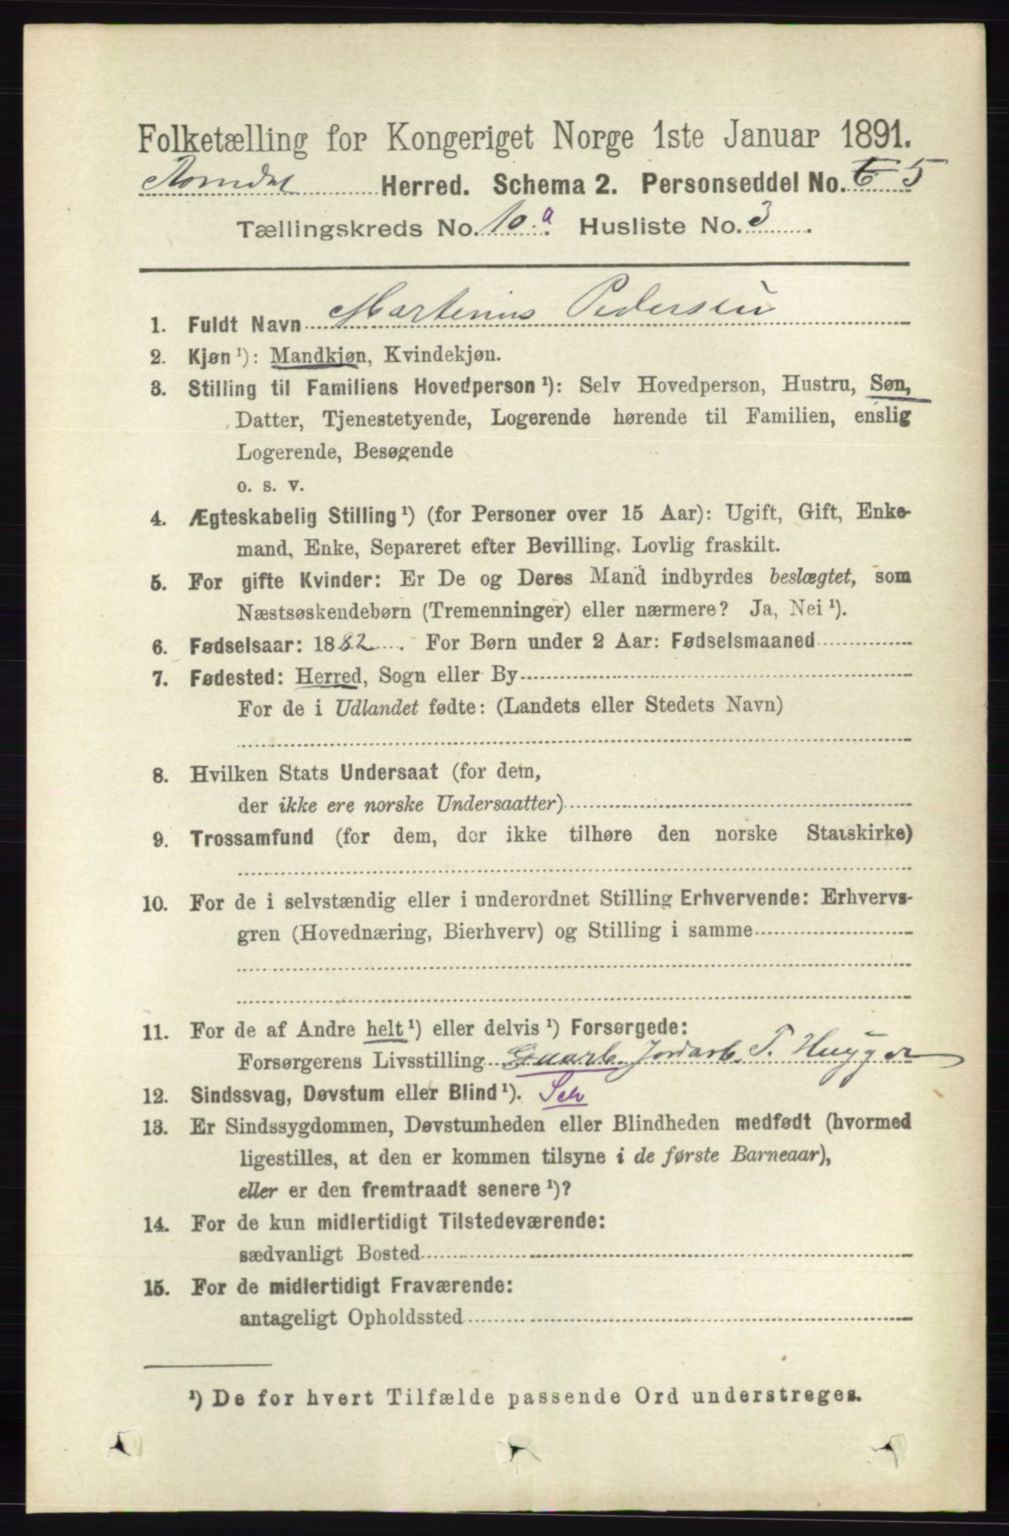 Folketælling for Kongeriget Norge 1ste Januar 1891.
Romedal Herred. Schema 2. Personseddel No. 6 5
Tællingskreds No. 10 a. Husliste No. 3.
1. Fuldt Navn Martinius Pedersen
2. Kjøn ¹): Mandkjøn, Kvindekjøn.
3. Stilling til Familiens Hovedperson ¹): Selv Hovedperson, Hustru, Søn,
Datter, Tjenestetyende, Logerende hørende til Familien, enslig
Logerende, Besøgende
o. s. v.
4. Ægteskabelig Stilling ¹) (for Personer over 15 Aar): Ugift, Gift, Enke-
mand, Enke, Separeret efter Bevilling. Lovlig fraskilt.
5. For gifte Kvinder: Er De og Deres Mand indbyrdes beslægtet, som
Næstsøskendebørn (Tremenninger) eller nærmere? Ja, Nei ¹).
6. Fødselsaar: 1882. For Børn under 2 Aar: Fødselsmaaned
7. Fødested: Herred, Sogn eller By
For de i Udlandet fødte: (Landets eller Stedets Navn)
8. Hvilken Stats Undersaat (for dem,
der ikke ere norske Undersaatter)
9. Trossamfund (for dem, der ikke tilhøre den norske Statskirke)
10. For de i selvstændig eller i underordnet Stilling Erhvervende: Erhvervs-
gren (Hovednæring, Bierhverv) og Stilling i samme
11. For de af Andre helt ¹) eller delvis ¹) Forsørgede:
Forsørgerens Livsstilling Jordarb.
12. Sindssvag, Døvstum eller Blind ¹).
13. Er Sindssygdommen, Døvstumheden eller Blindheden medfødt (hvormed
ligestilles, at den er kommen tilsyne i de første Barneaar),
eller er den fremtraadt senere ¹)?
14. For de kun midlertidigt Tilstedeværende:
sædvanligt Bosted
15. For de midlertidigt Fraværende:
antageligt Opholdssted
¹) De for hvert Tilfælde passende Ord understreges.